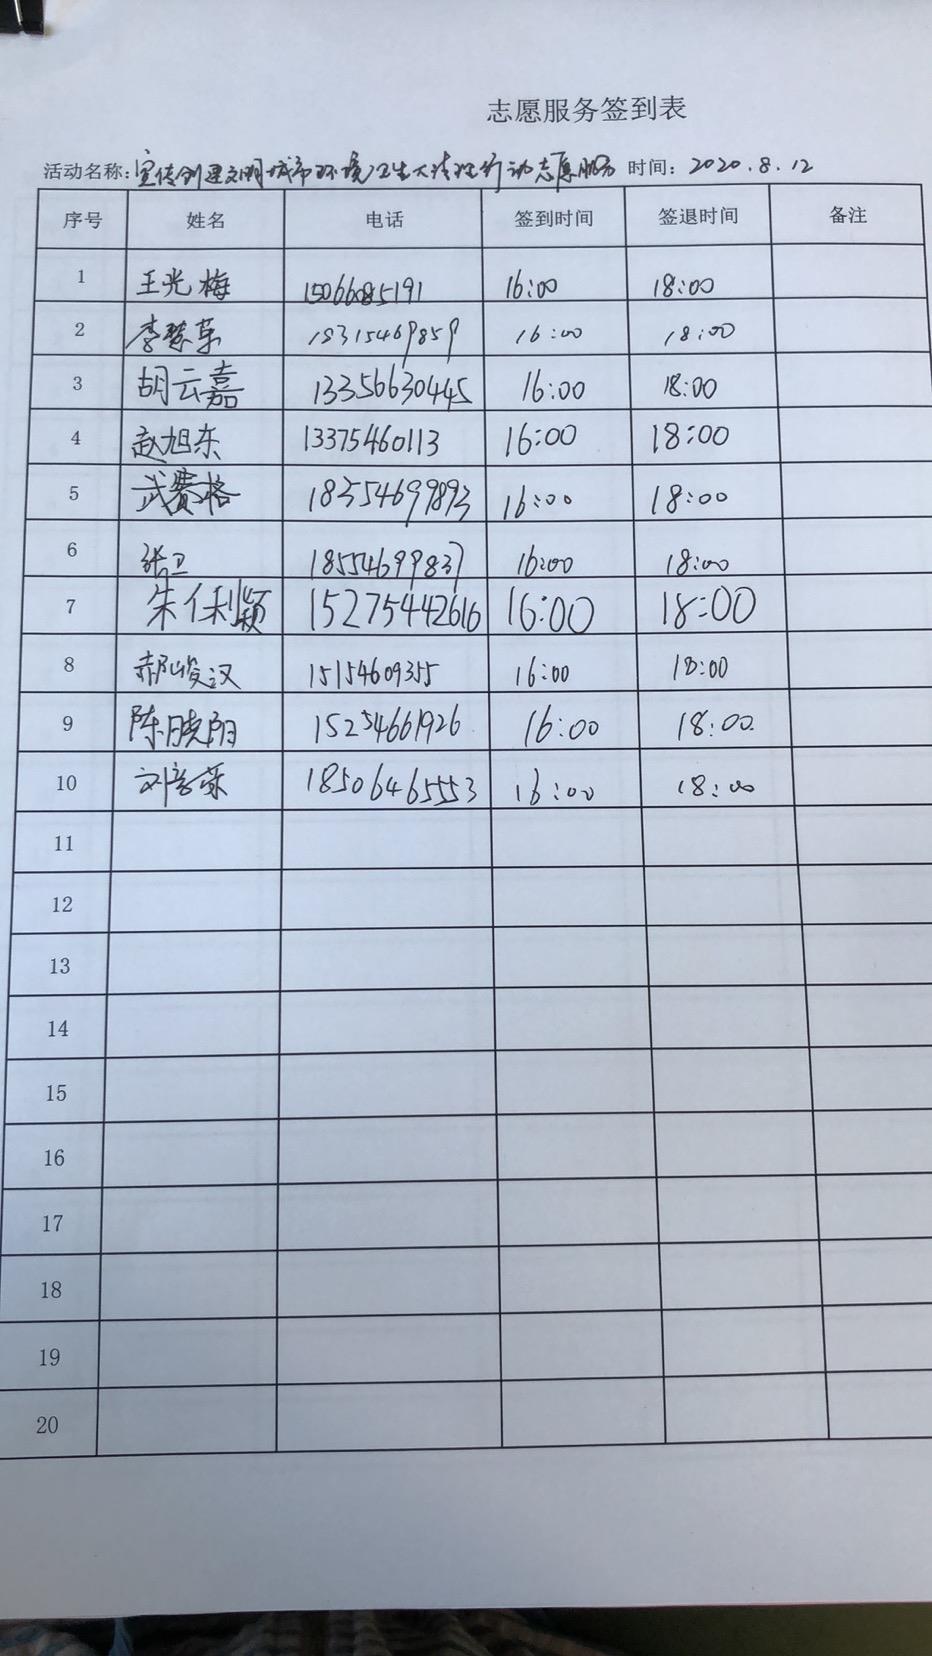 志愿服务签到表
活动名称:宣传创建文明城市环境卫生大清理行动志愿服务 时间: 2020.8.12
序号 姓名 电话 签到时间 签退时间 备注
1 王光梅 15066085191 16:00 18:00
2 李慧荣 18315469859 16:00 18:00
3 胡云嘉 13356630445 16:00 18:00
4 赵旭东 13375460113 16:00 18:00
5 武赛格 18354699893 16:00 18:00
6 张卫 18554699837 16:00 18:00
7 朱利颖 15275442616 16:00 18:00
8 郝峻汉 15154609355 16:00 18:00
9 陈晓阳 15254661926 16:00 18:00
10 刘 18506465553 16:00 18:00
11
12
13
14
15
16
17
18
19
20